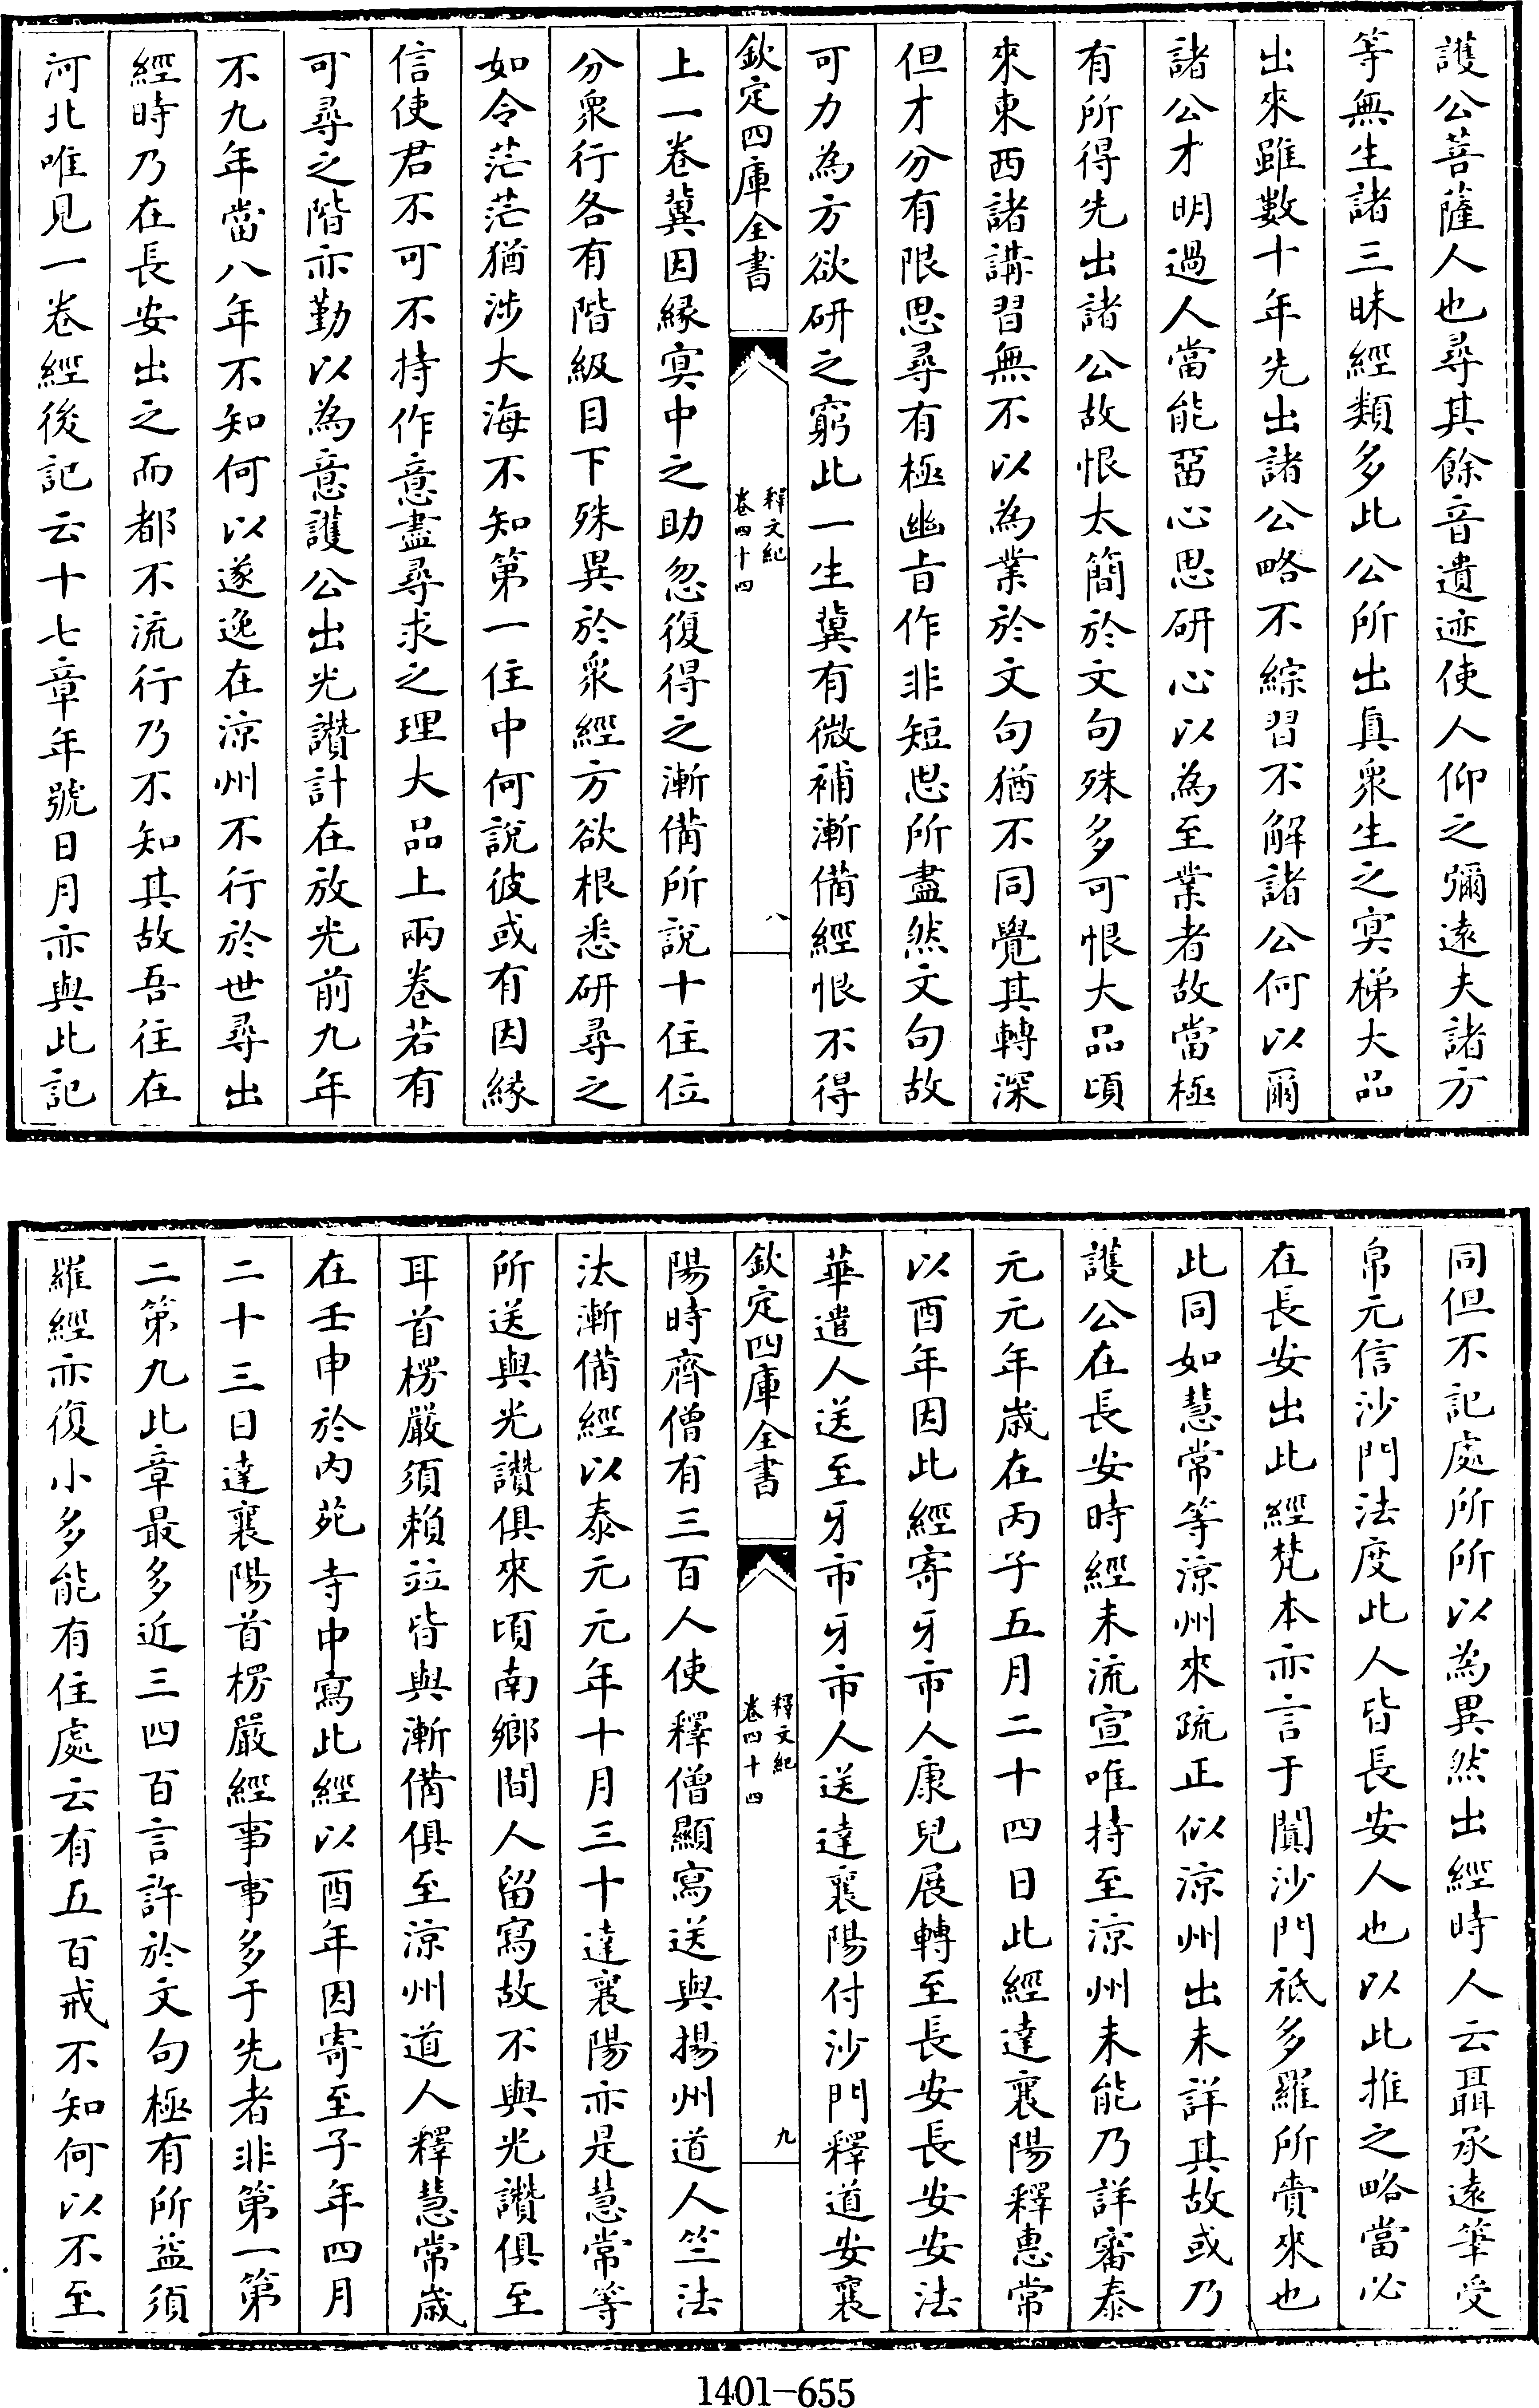 護公菩薩人也尋其餘音遺迹使人仰之彌遠夫諸方
等無生諸三昧經類多此公所出真衆生之冥梯大品
出來雖數十年先出諸公略不綜習不解諸公何以爾
諸公才明過人當能㽞心思研心以為至業者故當極
有所得先出諸公故恨太簡於文句殊多可恨大品頃
來東西諸講習無不以為業於文句猶不同覺其轉深
但才分有限思尋有極幽旨作非短思所盡然文句故
可力為方欲研之窮此一生冀有微補漸備經恨不得
欽定四庫全書
釋文紀
卷四十四
八
上一卷冀因緣冥中之助忽復得之漸備所說十住位
分衆行各有階級目下殊異於衆經方欲根悉研尋之
如今茫茫猶涉大海不知第一住中何說彼或有因緣
信使君不可不持作意盡尋求之理大品上兩卷若有
可尋之階亦勤以為意護公出光讚計在放光前九年
不九年當八年不知何以遂逸在涼州不行於世尋出
經時乃在長安出之而都不流行乃不知其故吾往在
河北唯見一卷經後記云十七章年號日月亦與此記
同但不記處所所以為異然出經時人云聶承遠筆受
帛元信沙門法度此人皆長安人也以此推之略當必
在長安出此經梵本亦言于闐沙門祇多羅所賷來也
此同如慧常等涼州來疏正似涼州出未詳其故或乃
護公在長安時經未流宣唯持至涼州未能乃詳審泰
元元年歲在丙子五月二十四日此經達襄陽釋惠常
以酉年因此經寄牙市人康兒展轉至長安長安安法
華遣人送至牙市牙市人送達襄陽付沙門釋道安襄
欽定四庫全書
釋文紀
卷四十四
九
陽時齊僧有三百人使釋僧顯寫送與揚州道人竺法
汰漸備經以泰元元年十月三十達襄陽亦是慧常等
所送與光讚俱來頃南鄉間人留寫故不與光讚俱至
耳首楞嚴須賴竝皆與漸備俱至涼州道人釋慧常歲
在壬申於內苑寺中寫此經以酉年因寄至子年四月
二十三日達襄陽首楞嚴經事事多于先者非第一第
二第九此章最多近三四百言許於文句極有所益須
羅經亦復小多能有住處云有五百戒不知何以不至
1401-655